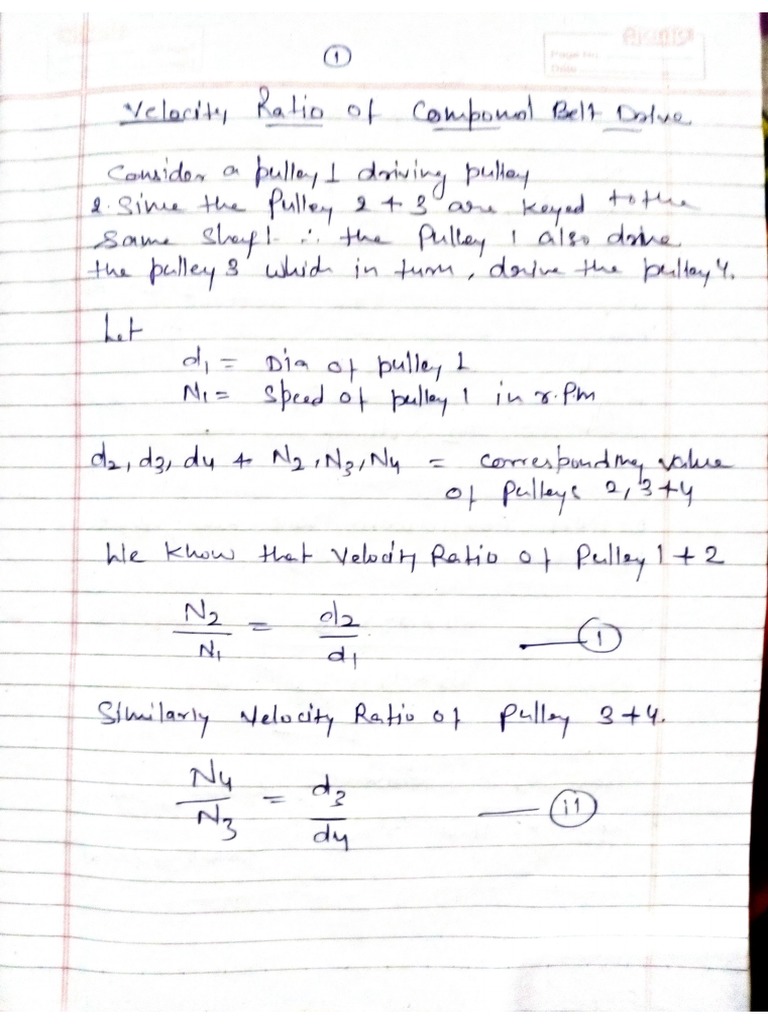 1
Velocity Ratio of Compound Belt Drive
Consider a pulley 1 driving pulley
2. Since the Pulley 2 + 3 are keyed to the
same shaft ∴ the Pulley 1 also drive
the pulley 3 which in turn, drive the pulley 4.
Let
d1 = Dia of pulley 1
N1 = Speed of pulley 1 in r.Pm
d2, d3, d4 + N2, N3, N4 = corresponding value
of Pulleys 2, 3 + 4
We know that Velocity Ratio of Pulley 1 + 2
N2/N1 = d2/d1 — (1)
Similarly Velocity Ratio of pulley 3 + 4.
N4/N3 = d3/d4 — (i1)